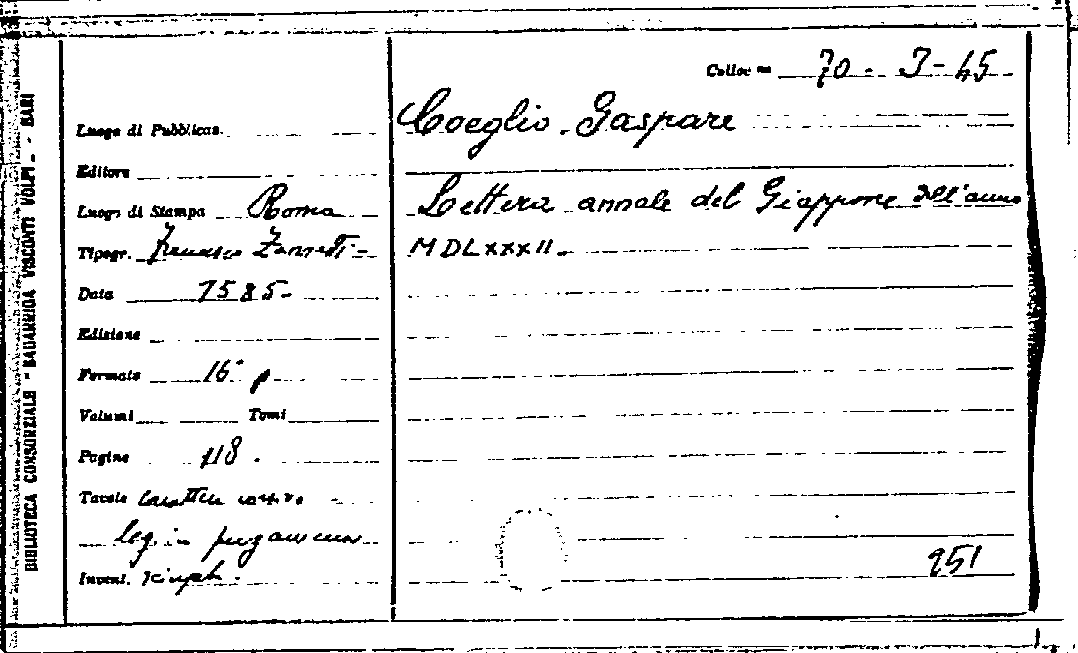 BIBLIOTECA CONSORZIALE - SAGARRIGA VISCONTI VOLPI - BARI
Colloc ne 70 - I - 45
Luogo di Pubblicaz.
Editore
Luogo di Stampa Roma
Tipogr. Francesco Zannetti -
Data 1585 -
Edizione
Formato 16° p
Volumi Tomi
Pagine 118 .
Tavole caratteri corsivo
leg. in pergamena
Invent.
Coeglio . Gaspare
Lettera annale del Giappone dell'anno
MDLXXXII -
951